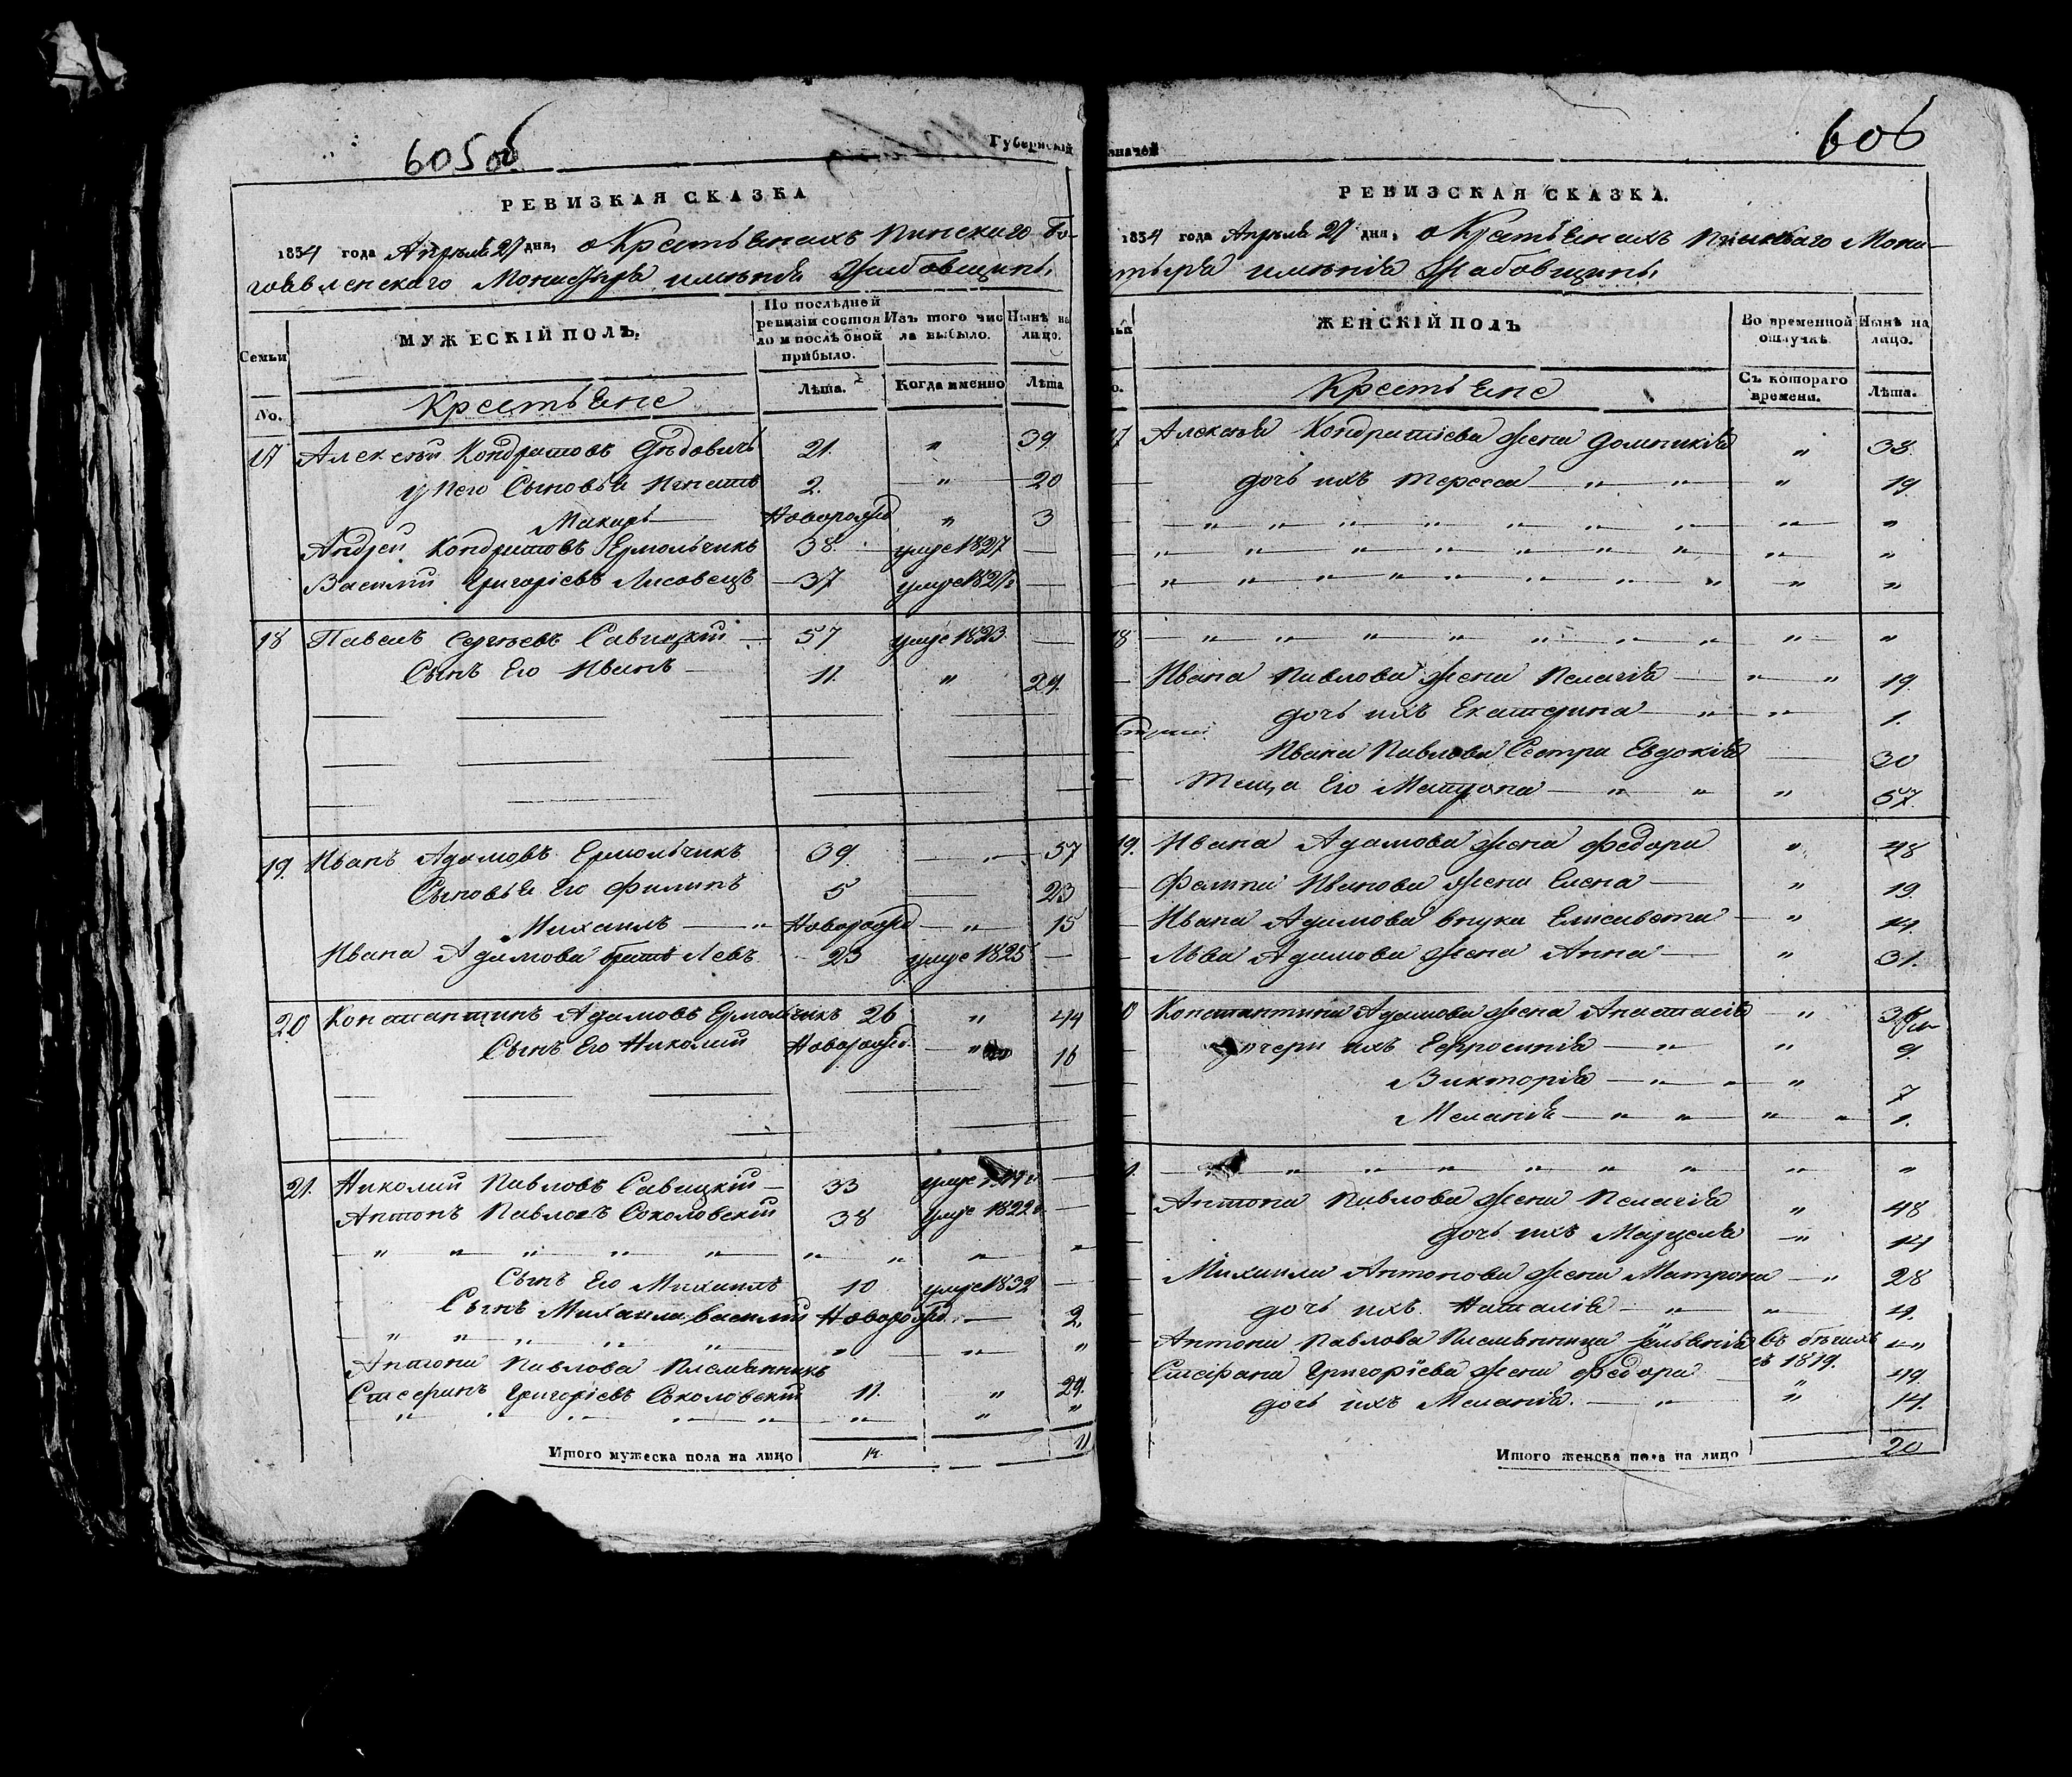 605об
Губернскій
РЕВИЗКАЯ СКАЗКА
1834 года Апрѣля 27 дня, о Крестьянахъ Пинскаго Бо-
гоявленскаго Монастыря имѣнія Жабовщины
Семьи
МУЖЕСКІЙ ПОЛЪ.
По послѣдней ревизіи состояло и послѣ оной прибыло.
Изъ того числа выбыло.
Нынѣ на лицо.
No.
Крестьяне
Лѣта.
Когда именно
Лѣта
17 Алексѣй Кондратовъ Дѣдовичъ 21. " 39
у него Сыновья Игнатъ 2. " 20
Макаръ Новорожд " 3
Андрей Кондратовъ Ермольчикъ 38. умре 1827
Василій Григоріевъ Лисовецъ 37 умре 1827г
18 Павелъ Сергѣевъ Савицкій 57 умре 1823
Сынъ Его Иванъ 11. " 29.
19. Иванъ Адамовъ Ермольчикъ 39. " 57
Сыновья Его Филипъ 5 23
Михаилъ " Новорожд " 15
Ивана Адамова братъ Левъ 23 умре 1825
20 Константинъ Адамовъ Ермольчикъ 26 " 44
Сынъ Его Николай Новорожд. " 16
21. Николай Павловъ Савицкій 33 умре
Антонъ Павловъ Соколовскій 38 умре 1822г
" " " " " " " " "
Сынъ Его Михаилъ 10 умре 1832
Сынъ Михаила Василій Новорожд. 2.
" " " " " " "
Антона Павлова Племянникъ
Стефанъ Григоріевъ Соколовскій 11. " 29.
" " " " " " " "
Итого мужеска пола на лицо 14. 11
значей
606
РЕВИЗСКАЯ СКАЗКА.
1834 года Апрѣля 27 дня, о Крестьянахъ Пинскаго Мона-
стыря имѣнія Жабовщины
ЖЕНСКІЙ ПОЛЪ
Во временной отлучкѣ
Нынѣ на лицо.
Крестьяне
Съ котораго времени.
Лѣта.
17 Алексѣя Кондратіева жена Домникія " 38.
дочь ихъ Тересса " " " 19
" " " " " " " " "
" " " " " " " " "
" " " " " " " " " "
18 " " " " " " " " "
Ивана Павлова жена Пелагія " " 19.
дочь ихъ Екатерина " " 1.
Ивана Павлова Сестра Евдокія 30
Теща Его Матрона " " " 57.
19. Ивана Адамова жена Федора " 48
Филипа Иванова жена Елена " 19.
Ивана Адамова внука Елисавета " 14.
Льва Адамова жена Анна " 31.
20 Константина Адамова жена Анастасія "
дочери ихъ Ефросинія " " 9.
Викторія " " " 7
Меланія " " " " 1.
21. " " " " " " " "
Антона Павлова жена Пелагія " 48
дочь ихъ Марцеля " 14
Михаила Антонова жена Матрона " 28
дочь ихъ Наталія " " 4.
Антона Павлова Племянница Ульянія въ бѣгахъ "
съ 1819.
Стефана Григоріева жена Федора " 49.
дочь ихъ Меланія. " " 14.
Итого женска пола на лицо 20